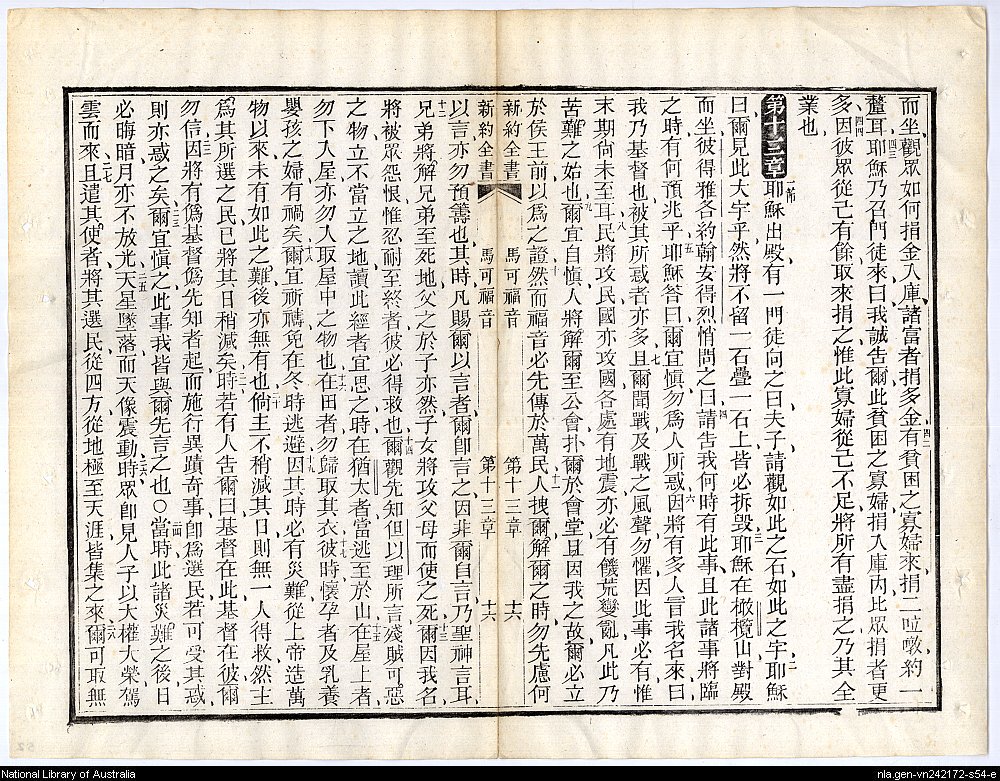 而坐觀眾如何捐金入庫諸富者捐多金有貧困之寡婦來捐二𠵽㗻約一
釐耳耶穌乃召門徒來曰我誠告爾此貧困之寡婦捐入庫內比眾捐者更
多因彼眾從己有餘取來捐之惟此寡婦從己不足將所有盡捐之乃其全
業也
第十三章耶穌出殿有一門徒向之曰夫子請觀如此之石如此之宇耶穌
曰爾見此大宇乎然將不留一石疊一石上皆必拆毀耶穌在橄欖山對殿
而坐彼得雅各約翰安得烈悄問之曰請告我何時有此事且此諸事將臨
之時有何預兆乎耶穌答曰爾宜慎勿為人所惑因將有多人冒我名來曰
我乃基督也被其所惑者亦多且爾聞戰及戰之風聲勿懼因此事必有惟
末期尚未至耳民將攻民國亦攻國各處有地震亦必有饑荒變亂凡此乃
苦難之始也爾宜自慎人將解爾至公會扑爾於會堂且因我之故爾必立
於侯王前以為之證然而福音必先傳於萬民人拽爾解爾之時勿先慮何
新約全書 馬可福音 第十三章 十六
新約全書 馬可福音 第十三章 十六
以言亦勿預籌也其時凡賜爾以言者爾即言之因非爾自言乃聖神言耳
兄弟將解兄弟至死地父之於子亦然子女將攻父母而使之死爾因我名
將被眾怨恨惟忍耐至終者彼必得救也爾觀先知但以理所言殘賊可惡
之物立不當立之地讀此經者宜思之時在猶太者當逃至於山在屋上者
勿下入屋亦勿入取屋中之物也在田者勿歸取其衣彼時懷孕者及乳養
嬰孩之婦有禍矣爾宜祈禱免在冬時逃避因其時必有災難從上帝造萬
物以來未有如此之難後亦無有也倘主不稍減其日則無一人得救然主
為其所選之民已將其日稍減矣時若有人告爾曰基督在此基督在彼爾
勿信因將有偽基督偽先知者起而施行異蹟奇事即為選民若可受其惑
則亦惑之矣爾宜慎之此事我皆與爾先言之也○當時此諸災難之後日
必晦暗月亦不放光天星墜落而天像震動時眾即見人子以大權大榮駕
雲而來且遣其使者將其選民從四方從地極至天涯皆集之來爾可取無
National Library of Australia
nla.gen-vn242172-s54-e